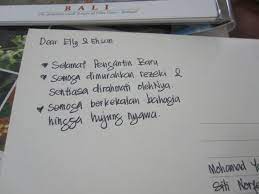 BALI
Dear Elly & Ehsan
Selamat Pengantin Baru
Semoga dimurahkan rezeki &
sentiasa dirahmati olehNya.
Semoga berkekalan bahagia
hingga hujung nyawa.
Mohamad
Siti